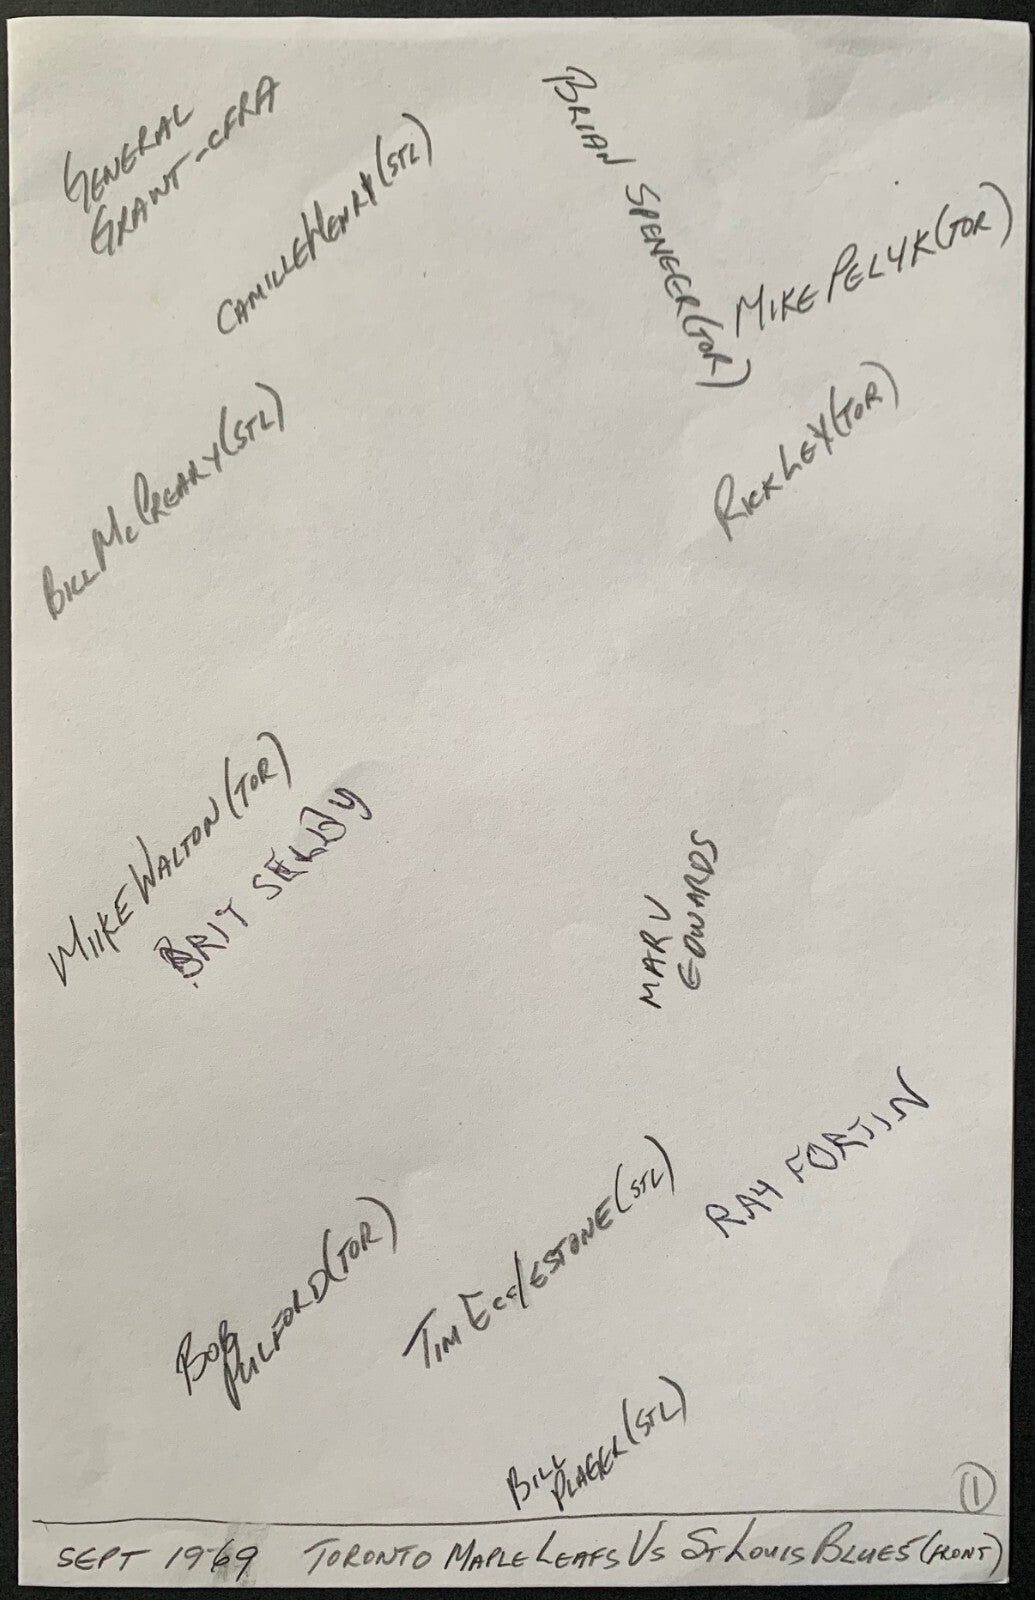 GENERAL
GRANT-CFRA
CAMILLE HENRY (STL)
BRIAN SPENCER (TOR)
MIKE PELYK (TOR)
RICK LEY (TOR)
BILL McCREARY (STL)
MIIKE WALTON (TOR)
BRIT SELBY
MARV
EDWARDS
RAY FORTIN
TIM ECCLESTONE (STL)
BOB
PULFORD (TOR)
BILL
PLAGER (STL)
1
SEPT 1969 TORONTO MAPLE LEAFS VS ST LOUIS BLUES (FRONT)